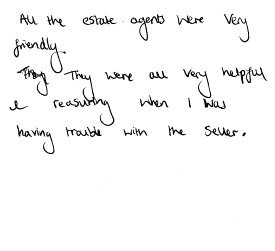 All the estate agents were very
friendly.
They They were all very helpful
& reasuring when I was
having trouble with the seller.